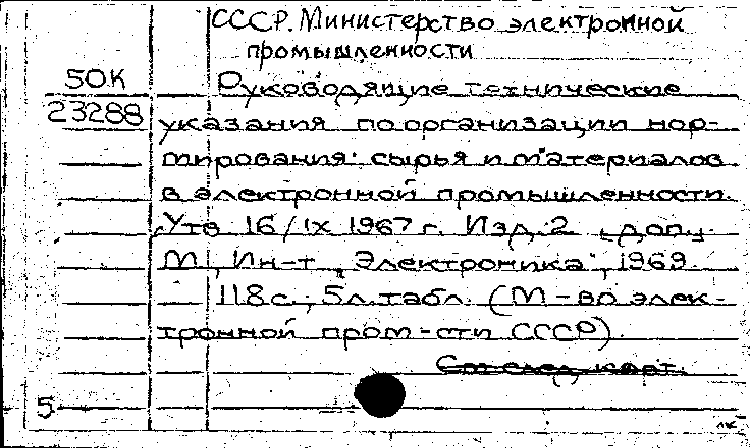 СССР. Министерство электронной
промышленности
50К
23288
Руководящие технические
указания по организации нор-
мирования сырья и материалов
в электронной промышленности.
Утв. 16/IX 1967 г. Изд. 2, доп.
М., Ин-т „Электроника", 1969.
118 с., 5 л. табл. (М-во элек-
тронной пром-сти СССР).
См след. карт.
5